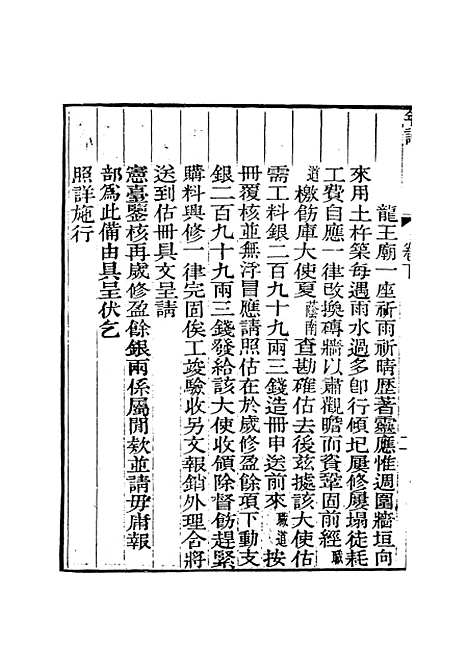 龍王廟一座祈雨祈晴歷著靈應惟週圍牆垣向
來用土杵築每遇雨水過多卽行傾圮屢修屢塌徒耗
工費自應一律改換磚牆以肅觀瞻而資鞏固前經職
道檄飭庫大使夏蔭南查勘確估去後茲據該大使估
需工料銀二百九十九兩三錢造冊申送前來職道按
冊覆核並無浮冒應請照估在於歲修盈餘項下動支
銀二百九十九兩三錢發給該大使收領除督飭趕緊
購料興修一律完固俟工竣驗收另文報銷外理合將
送到估冊具文呈請
憲臺鑒核再歲修盈餘銀兩係屬閒欸並請毋庸報
部爲此備由具呈伏乞
照詳施行
卷下